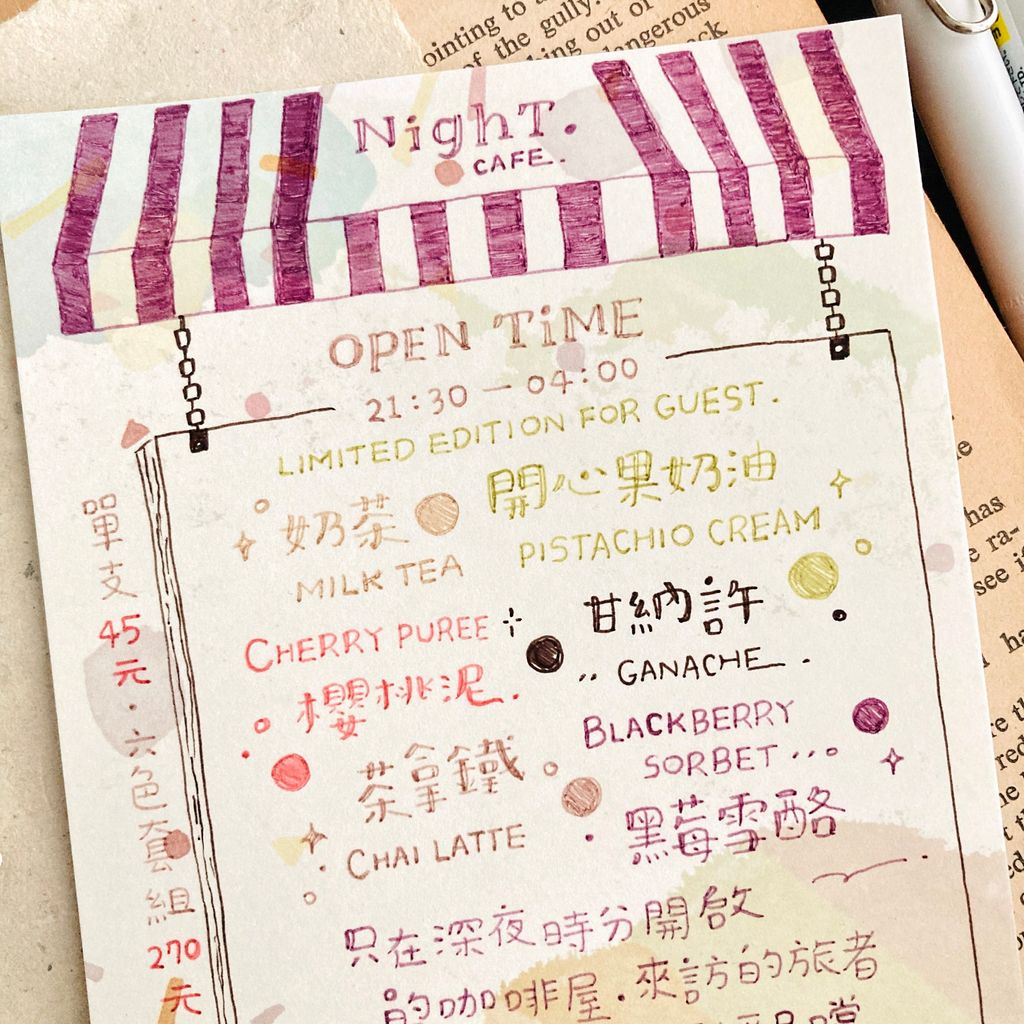 ointing to a
of the gully.
king out of
dangerous
ck
NighT.
CAFE.
OPEN TiME
21:30 — 04:00
LIMITED EDITION FOR GUEST.
奶茶
MILK TEA
開心果奶油
PISTACHIO CREAM
CHERRY PUREE
櫻桃泥.
甘納許
GANACHE.
茶拿鐵
CHAI LATTE
BLACKBERRY
SORBET
黑莓雪酪
只在深夜時分開啟
的咖啡屋.來訪的旅者
單支
45
元.六色套組
270
元
has
e ra-
see i